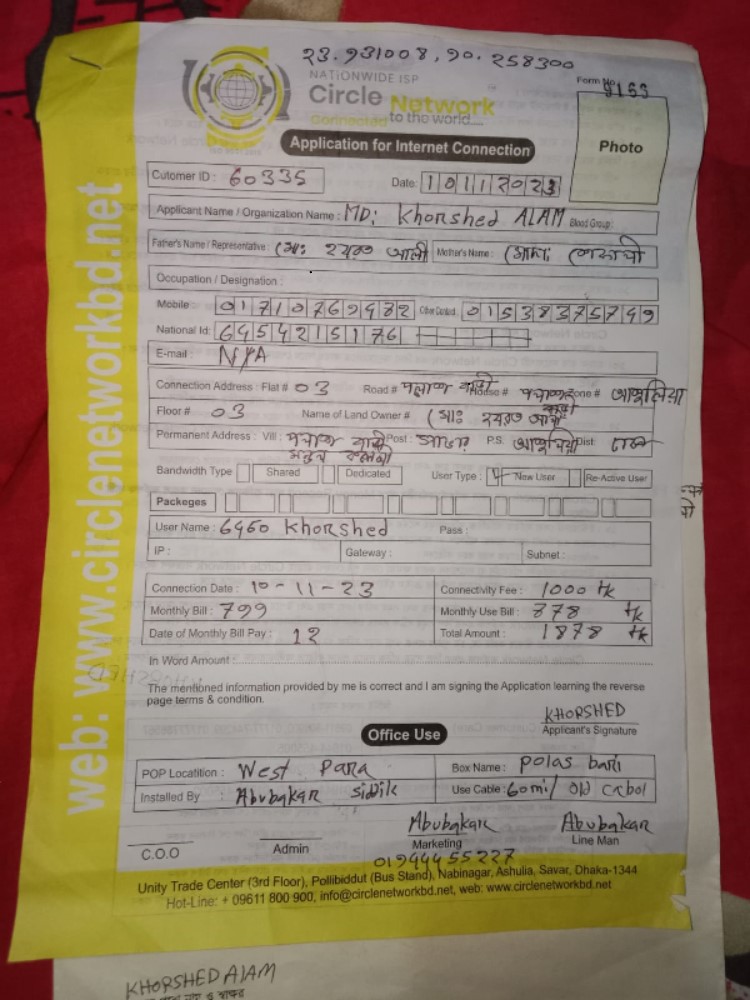 23.931008, 90.258300
NATIONWIDE ISP
Circle Network
Connected to the world....
Form No 9153
Photo
Application for Internet Connection
Cutomer ID : 60335 Date: 10112023
Applicant Name / Organization Name : MD: Khorshed ALAM Blood Group:
Father's Name / Representative : মোঃ হযরত আলী Mother's Name : মোসাঃ
Occupation / Designation :
Mobile : 01710769482 Other Contact 01538375749
National Id: 6454215176
E-mail : N/A
Connection Address : Flat # 03 Road # পলাশ বাড়ী House # Zone # আশুলিয়া
Floor # 03 Name of Land Owner # মোঃ হযরত আলী
Permanent Address : Vill : পলাশ বাড়ী Post : সাভার P.S. আশুলিয়া Dist ঢাকা
Bandwidth Type Shared Dedicated User Type : New User Re-Active User
Packeges
User Name : 6960 Khorshed Pass :
IP : Gateway : Subnet :
Connection Date : 10-11-23 Connectivity Fee : 1000 tk
Monthly Bill : 799 Monthly Use Bill : 878 tk
Date of Monthly Bill Pay : 12 Total Amount : 1878 tk
In Word Amount :
The mentioned information provided by me is correct and I am signing the Application learning the reverse
page terms & condition.
KHORSHED
Applicant's Signature
Office Use
POP Locatition : West Para Box Name : polas bari
Installed By : Abubakar Siddik Use Cable : 60mi/ old cabol
Abubakar Abubakar
C.O.O Admin Marketing Line Man
01944455227
Unity Trade Center (3rd Floor), Pollibiddut (Bus Stand), Nabinagar, Ashulia, Savar, Dhaka-1344
Hot-Line: + 09611 800 900, info@circlenetworkbd.net, web: www.circlenetworkbd.net
web: www.circlenetworkbd.net
KHORSHED ALAM